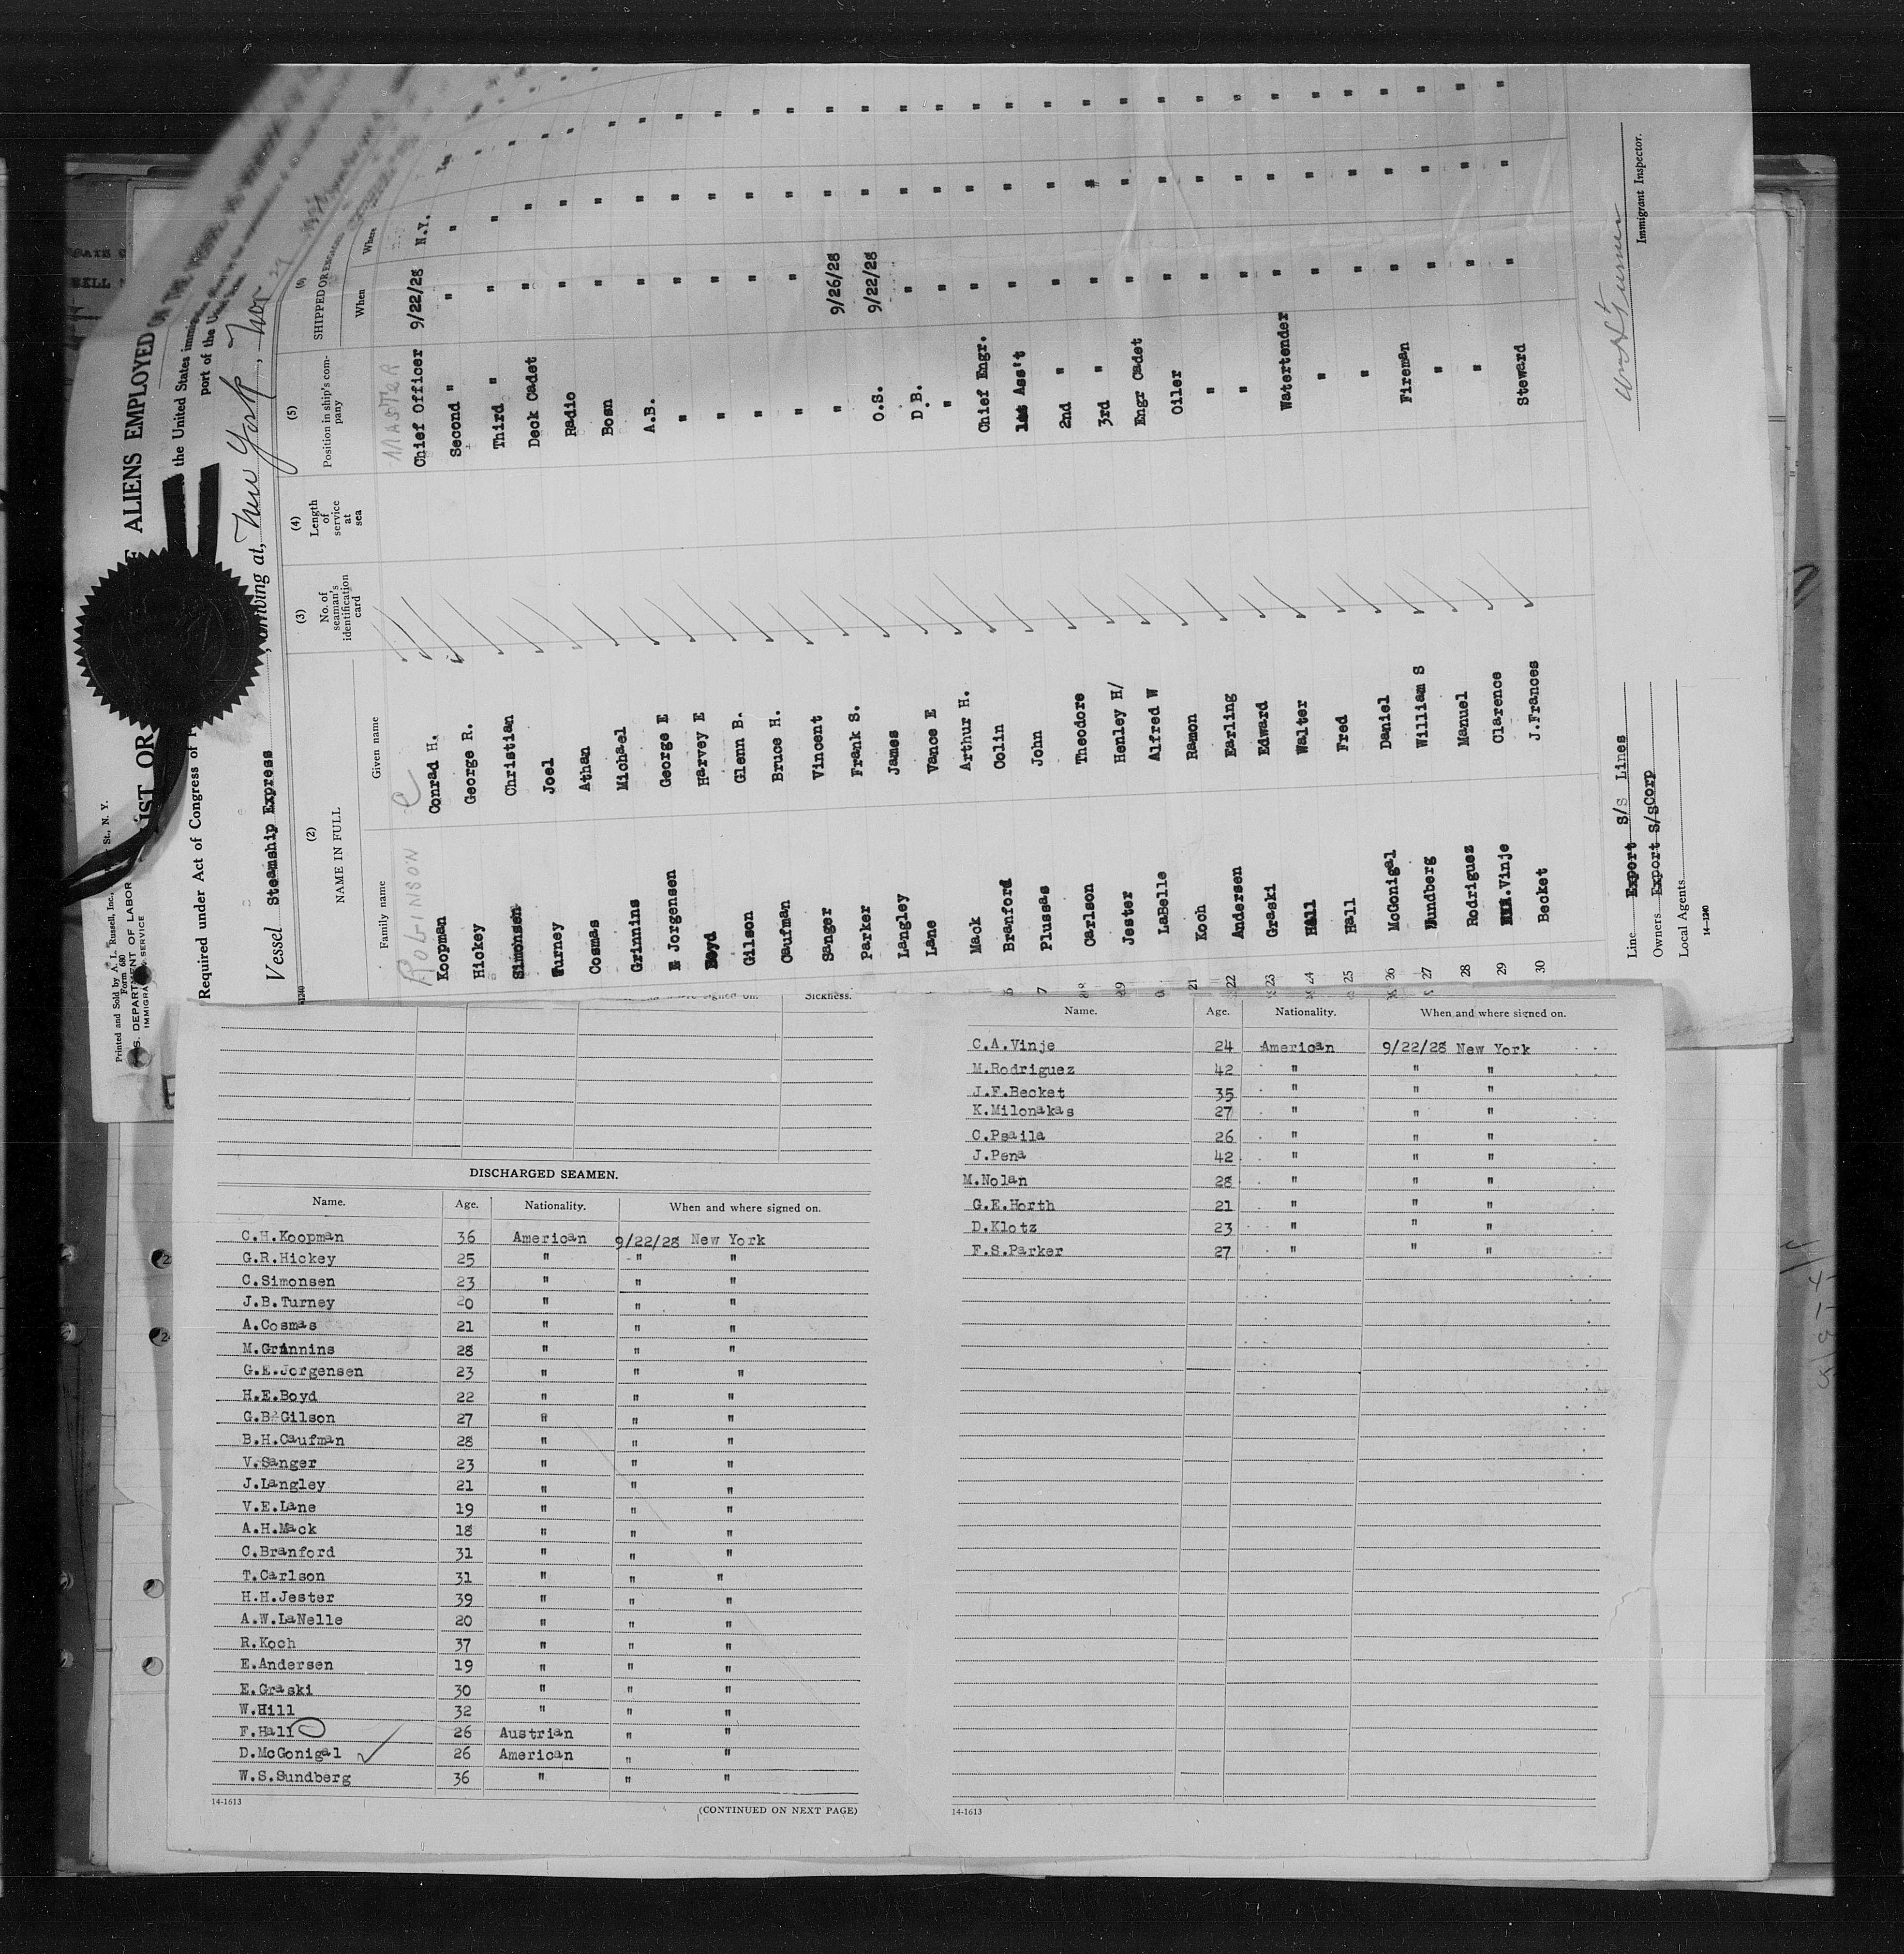 Printed and Sold by A. L. Russell, Inc., St., N. Y.
Form 680
DEPARTMENT OF LABOR
SERVICE
LIST OR ALIENS EMPLOYED ON THE
Required under Act of Congress of
the United States
port of the
Vessel Steamship Express , arriving at, New York, Nov 29
(2)
NAME IN FULL
Family name Given name
(3)
No. of
seaman's
identification
card
(4)
Length
of
service
at
sea
(5)
Position in ship's com-
pany
(6)
SHIPPED OR
When Where
Robinson C MASTER
Koopman Conrad H. Chief Officer 9/22/28 N.Y.
Hickey George R. Second " " "
Simonsen Christian Third " " "
Turney Joel Deck Cadet " "
Cosmas Athan Radio " "
Grinnins Michael Bosn " "
Jorgensen George E A.B. " "
Boyd Harvey E " " "
Gilson Glenn B. " " "
Caufman Bruce H. " " "
Sanger Vincent " " "
Parker Frank S. " 9/26/28 "
Langley James O.S. 9/22/28 "
Lane Vance E D.B. " "
Mack Arthur H. " " "
Branford Colin Chief Engr. " "
7 Plussas John 1st Ass't " "
Carlson Theodore 2nd " " "
Jester Henley H/ 3rd " " "
LaBelle Alfred W Engr Cadet " "
21 Koch Ramon Oiler " "
22 Andersen Earling " " "
23 Graski Edward " " "
24 Hill Walter Watertender " "
25 Hall Fred " " "
26 McGonigal Daniel " " "
27 Sundberg William S Fireman " "
28 Rodriguez Manuel " " "
29 Vinje Clarence " " "
30 Becket J.Frances Steward " "
Line Export S/S Lines
Owners Export S/SCorp
Local Agents
14-1240
Immigrant Inspector.
Sickness.
DISCHARGED SEAMEN.
Name. Age. Nationality. When and where signed on.
C.H.Koopman 36 American 9/22/28 New York
G.R.Hickey 25 " " "
C.Simonsen 23 " " "
J.B.Turney 20 " " "
A.Cosmas 21 " " "
M.Grinnins 28 " " "
G.E.Jorgensen 23 " " "
H.E.Boyd 22 " " "
G.B Gilson 27 " " "
B.H.Caufman 28 " " "
V.Sanger 23 " " "
J.Langley 21 " " "
V.E.Lane 19 " " "
A.H.Mack 18 " " "
C.Branford 31 " " "
T.Carlson 31 " " "
H.H.Jester 39 " " "
A.W.LaNelle 20 " " "
R.Koch 37 " " "
E.Andersen 19 " " "
E.Graski 30 " " "
W.Hill 32 " " "
F.Hall 26 Austrian " "
D.McGonigal 26 American " "
W.S.Sundberg 36 " " "
14-1613
(CONTINUED ON NEXT PAGE)
Name. Age. Nationality. When and where signed on.
C.A.Vinje 24 American 9/22/28 New York
M.Rodriguez 42 " " "
J.F.Becket 35 " " "
K.Milonakas 27 " " "
C.Psaila 26 " " "
J.Pena 42 " " "
M.Nolan 28 " " "
G.E.Horth 21 " " "
D.Klotz 23 " " "
F.S.Parker 27 " " "
14-1613